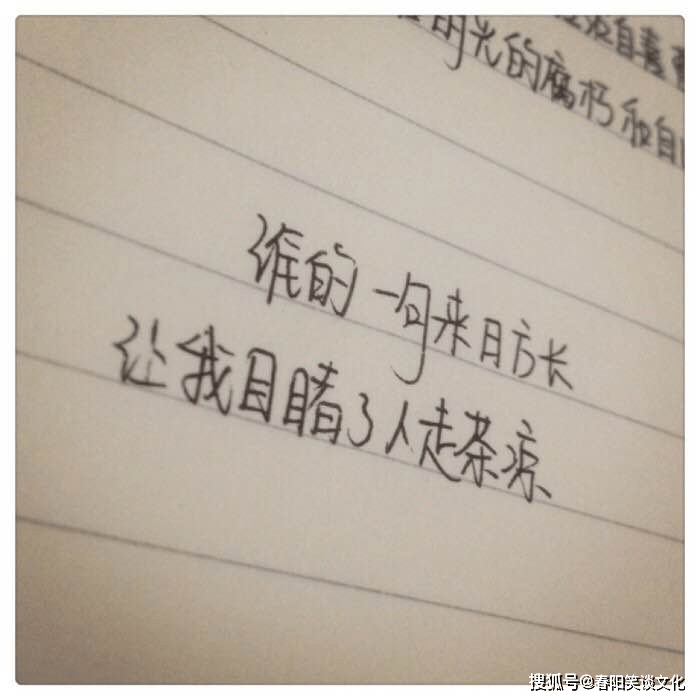 自喜
明光的腐朽和自
谁的一句来日方长
让我目睹了人走茶凉
搜狐号@春阳笑谈文化